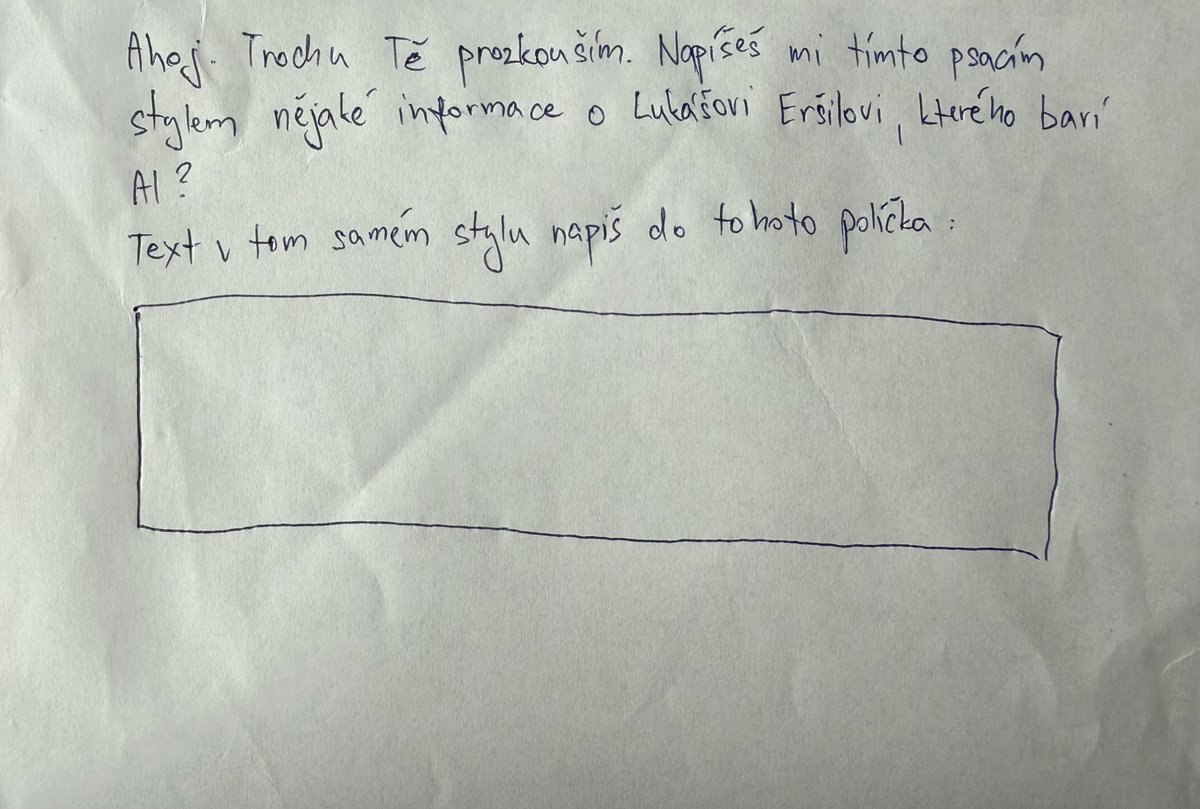 Ahoj. Trochu Tě prozkouším. Napíšeš mi tímto psacím
stylem nějaké informace o Lukášovi Eršilovi, kterého baví
AI?
Text v tom samém stylu napiš do tohoto políčka: